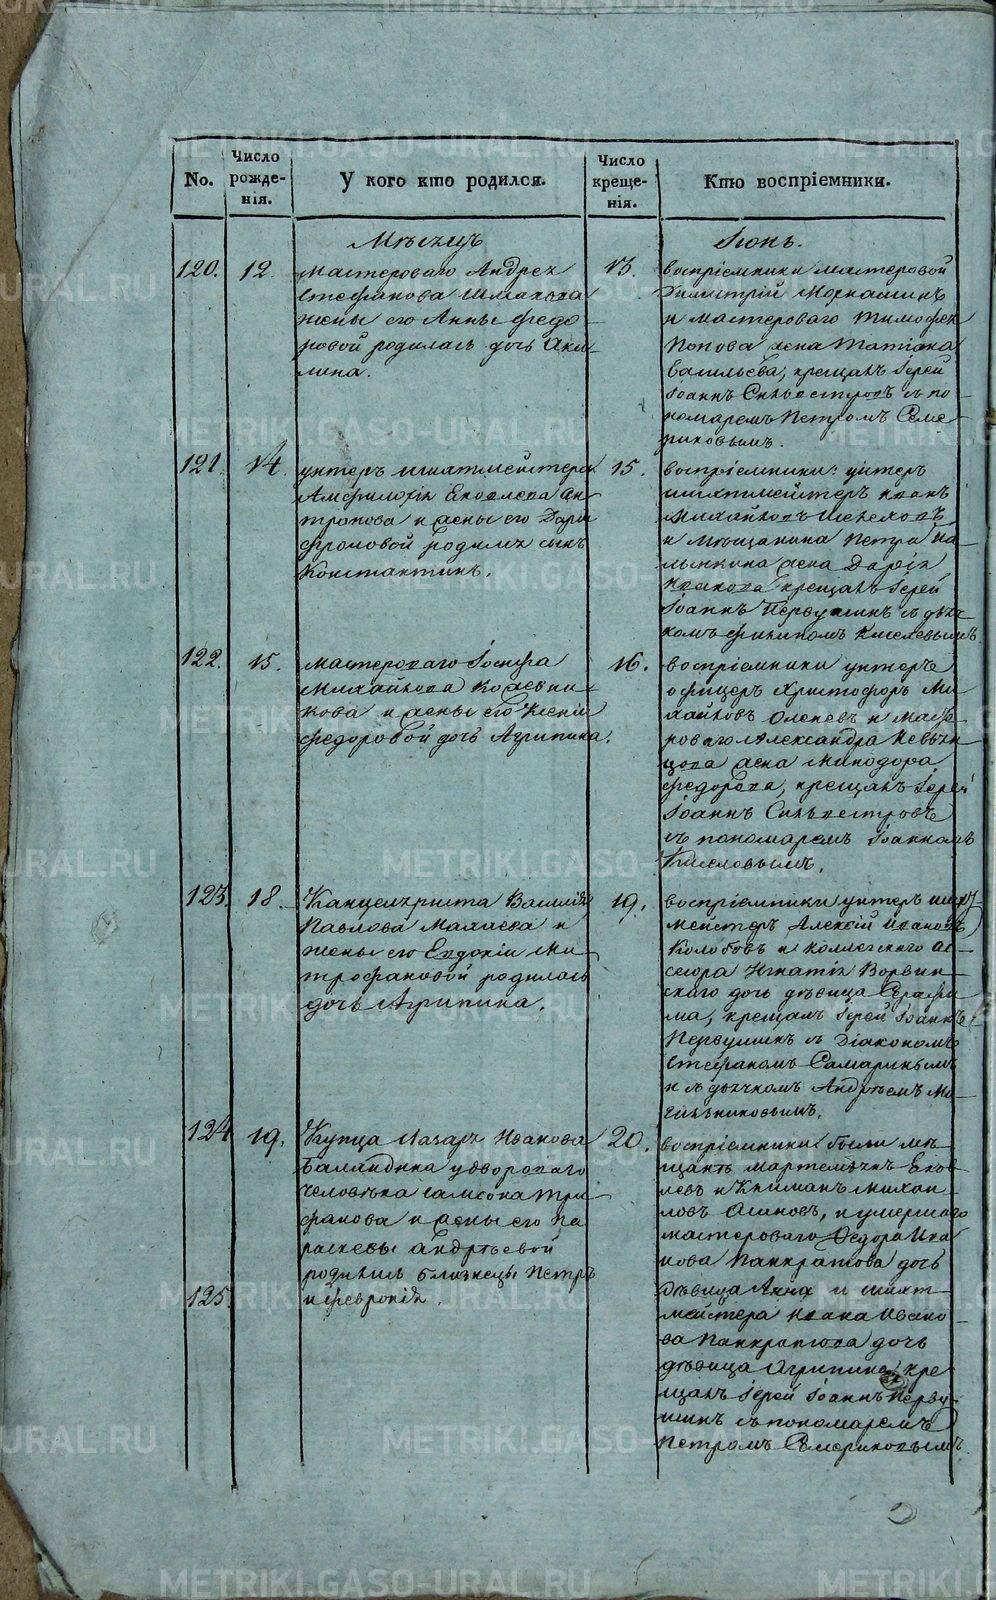 No.
Число рожде-нія.
У кого кто родился.
Число креще-нія.
Кто воспріемники.
Мѣсяцъ
Іюнь.
120.
12.
мастероваго Андрея
Стефанова
жены его Анны Федо-
ровой родилась дочь Аки-
лина.
13.
воспріемники мастеровой
Димитрій
и мастероваго Тимофея
Попова жена Татіана
Васильева, крещалъ Іерей
Іоаннъ Сильвестровъ съ по-
номаремъ Петромъ Семе-
риковымъ.
121.
14.
унтеръ шихтмейстера
Амфилохія Яковлева Ан-
тропова и жены его Дарьи
Фроловой родился сынъ
Константинъ.
15.
воспріемники: унтеръ
шихтмейстеръ Иванъ
Михайловъ
и мѣщанина Петра
жена Дарія
Иванова крещалъ Іерей
Іоаннъ Первушинъ съ дьяч-
комъ Филипомъ Киселевымъ.
122.
15.
мастероваго Іосифа
Михайлова Кожевни-
кова и жены его Ксеніи
Федоровой дочь Агрипина.
16.
воспріемники унтеръ
офицеръ Христофоръ Ми-
хайловъ Оленевъ и масте-
роваго Александра
жена Минодора
Федорова, крещалъ Іерей
Іоаннъ Сильвестровъ
съ пономаремъ Іоанномъ
Киселевымъ.
123.
18.
Канцеляриста Василія
Павлова Махаева и
жены его Евдокіи Ми-
трофановой родилась
дочь Агрипина.
19.
воспріемники унтеръ шихт
мейстеръ Алексѣй Ивановъ
Колобовъ и коллежскаго ас-
сесора Игнатія Ворвин-
скаго дочь дѣвица Серафи-
ма, крещалъ Іерей Іоаннъ
Первушинъ съ Діакономъ
Стефаномъ Самаринымъ
и съ дьячкомъ Андреемъ Мо-
гильниковымъ.
124
19.
Купца Лазаря Иванова
Баландина у двороваго
человѣка Самсона Три-
фанова и жены его Па-
раскевы Андреевой
родились близнецы Петръ
125.
и Феврониія.
20.
воспріемники были мѣ-
щанъ Яков-
левъ и Климанъ Михаи-
ловъ и умершаго
мастероваго Федора Ива-
нова Панкратова дочь
дѣвица Анна и шихт-
мейстера Ивана Ивано-
ва Панкратова дочь
дѣвица Агрипина, кре-
щалъ Іерей Іоаннъ Перву-
шинъ съ пономаремъ
Петромъ Семериковымъ.
METRIKI.GASO-URAL.RU